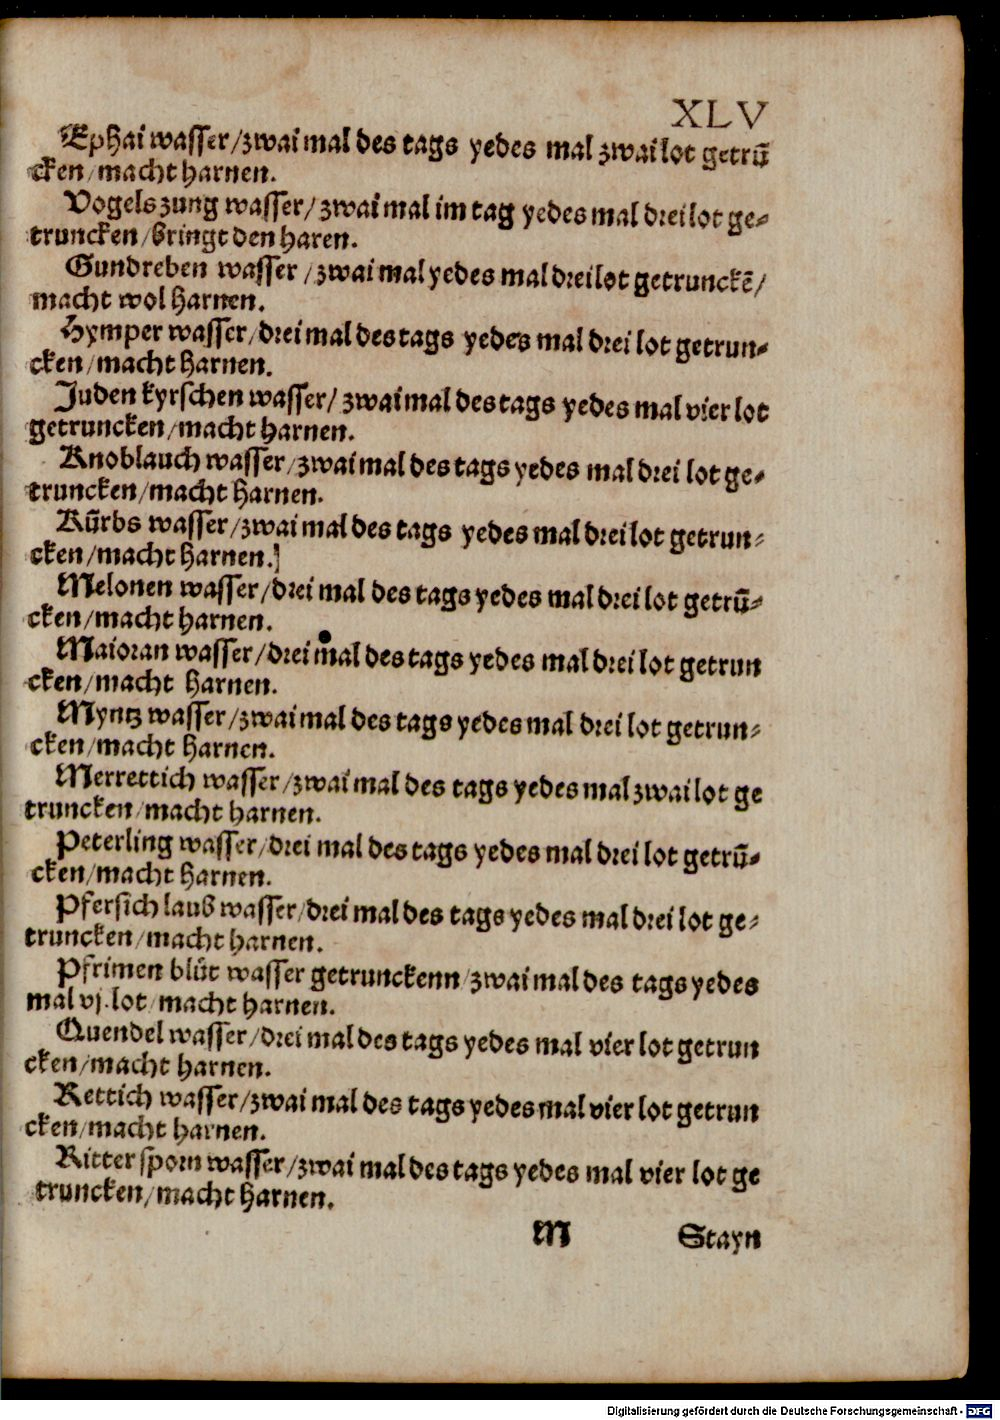 XLV
Ephai wasser/zwai mal des tags yedes mal zwai lot getrū
cken/macht harnen.
Vogelszung wasser/zwai mal im tag yedes mal drei lot ge-
truncken/bringt den haren.
Gundreben wasser/zwai mal yedes mal drei lot getrunckē/
macht wol harnen.
Hymper wasser/drei mal des tags yedes mal drei lot getrun-
cken/macht harnen.
Juden kyrschen wasser/zwai mal des tags yedes mal vier lot
getruncken/macht harnen.
Knoblauch wasser/zwai mal des tags yedes mal drei lot ge-
truncken/macht harnen.
Kürbs wasser/zwai mal des tags yedes mal drei lot getrun-
cken/macht harnen.]
Melonen wasser/drei mal des tags yedes mal drei lot getrū-
cken/macht harnen.
Maioran wasser/drei mal des tags yedes mal drei lot getrun
cken/macht harnen.
Myntz wasser/zwai mal des tags yedes mal drei lot getrun-
cken/macht harnen.
Merrettich wasser/zwai mal des tags yedes mal zwai lot ge
truncken/macht harnen.
Peterling wasser/drei mal des tags yedes mal drei lot getrū-
cken/macht harnen.
Pfersich laub wasser/drei mal des tags yedes mal drei lot ge-
truncken/macht harnen.
Pfrimen blůt wasser getrunckenn/zwai mal des tags yedes
mal vj. lot/macht harnen.
Quendel wasser/drei mal des tags yedes mal vier lot getrun
cken/macht harnen.
Rettich wasser/zwai mal des tags yedes mal vier lot getrun
cken/macht harnen.
Ritter sporn wasser/zwai mal des tags yedes mal vier lot ge
truncken/macht harnen.
M Stayn
Digitalisierung gefördert durch die Deutsche Forschungsgemeinschaft - DFG